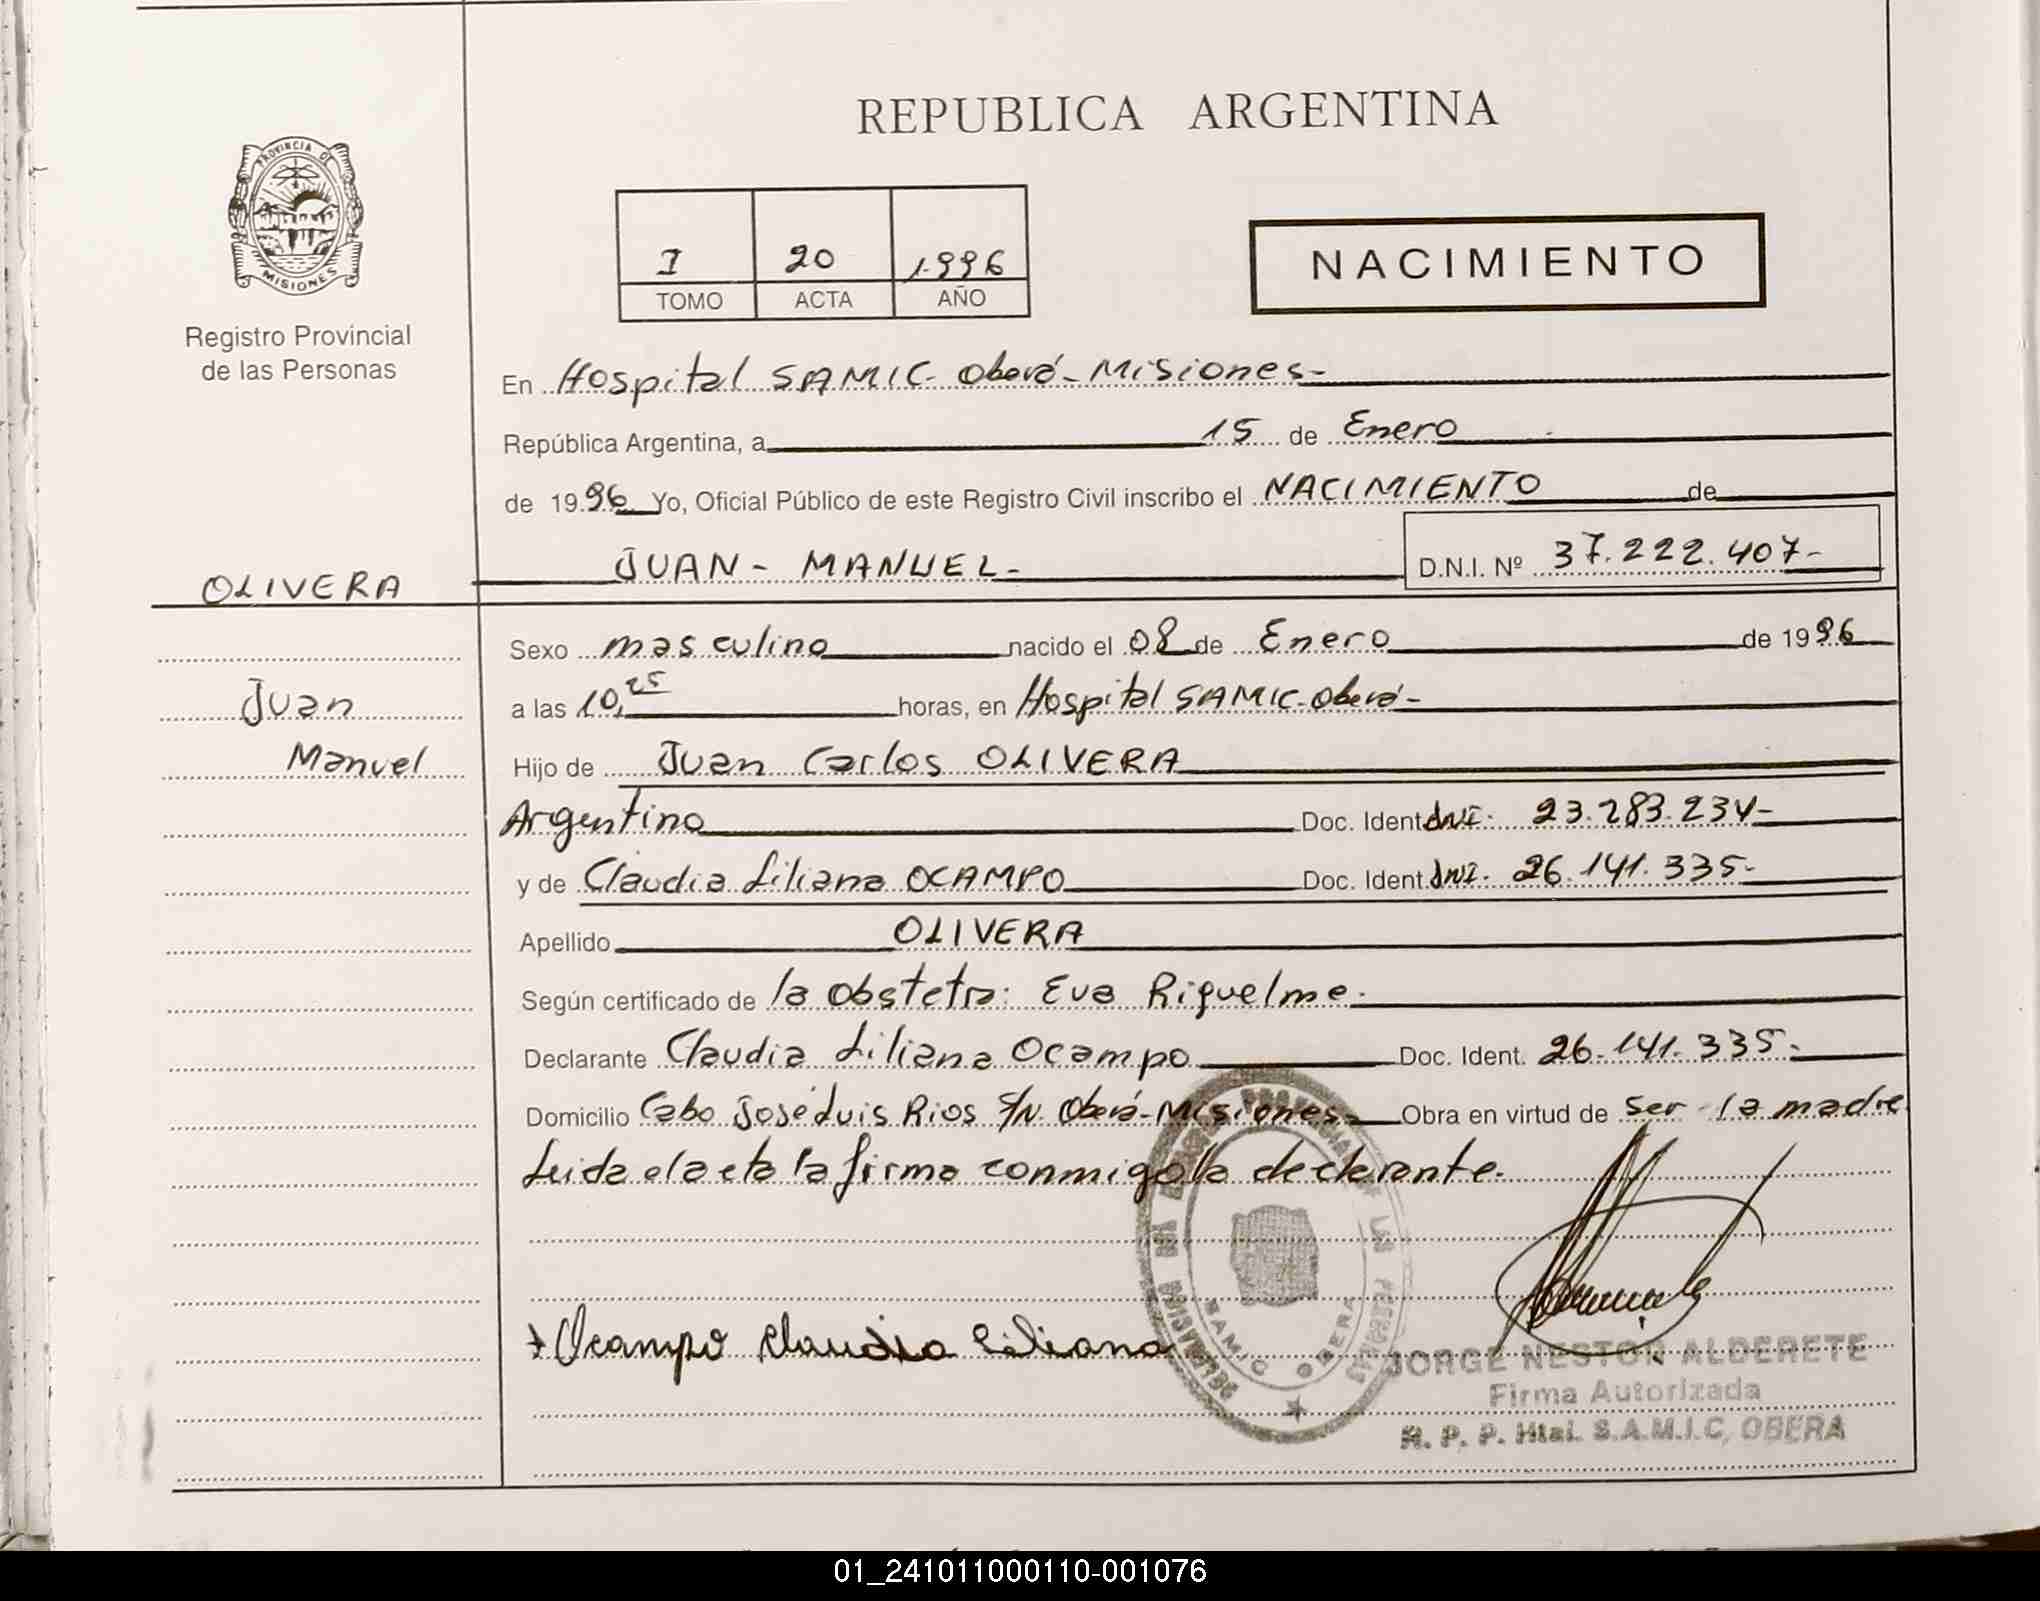 REPUBLICA ARGENTINA
PROVINCIA DE
MISIONES
Registro Provincial
de las Personas
I 20 1.996
TOMO ACTA AÑO
NACIMIENTO
En Hospital SAMIC- Oberá- Misiones-
República Argentina, a 15 de Enero
de 1996 Yo, Oficial Público de este Registro Civil inscribo el NACIMIENTO de
OLIVERA
JUAN- MANUEL- D.N.I. Nº 37.222.407-
Sexo masculino nacido el 08 de Enero de 1996
Juan
a las 10,25 horas, en Hospital SAMIC-Oberá-
Manuel
Hijo de Juan Carlos OLIVERA
Argentino Doc. Ident. DNI. 23.283.234-
y de Claudia Liliana OCAMPO Doc. Ident. DNI. 26.141.335-
Apellido OLIVERA
Según certificado de la obstetra: Eva Riquelme.
Declarante Claudia Liliana Ocampo Doc. Ident. 26.141.335.-
Domicilio Cabo José Luis Rios S/N. Oberá-Misiones- Obra en virtud de ser la madre
Leida el acta la firma conmigo la declarante.
SAMIC OBERA
Ocampo Claudia Liliana
JORGE NESTOR ALDERETE
Firma Autorizada
R. P. P. Htal. S.A.M.I.C, OBERA
01_241011000110-001076